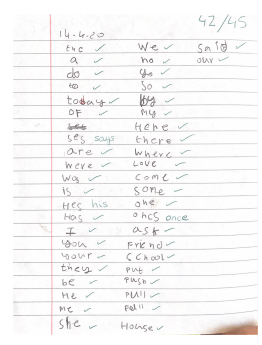 42/45
14-4.20
the
a
do
to
today
OF
ses says
are
were
was
is
Hes his
Has
I
you
your
they
be
He
me
she
We
no
go
so
by
my
Here
there
where
Love
come
some
one
ones once
ask
Friend
School
Put
Push
Pull
Full
House
said
our